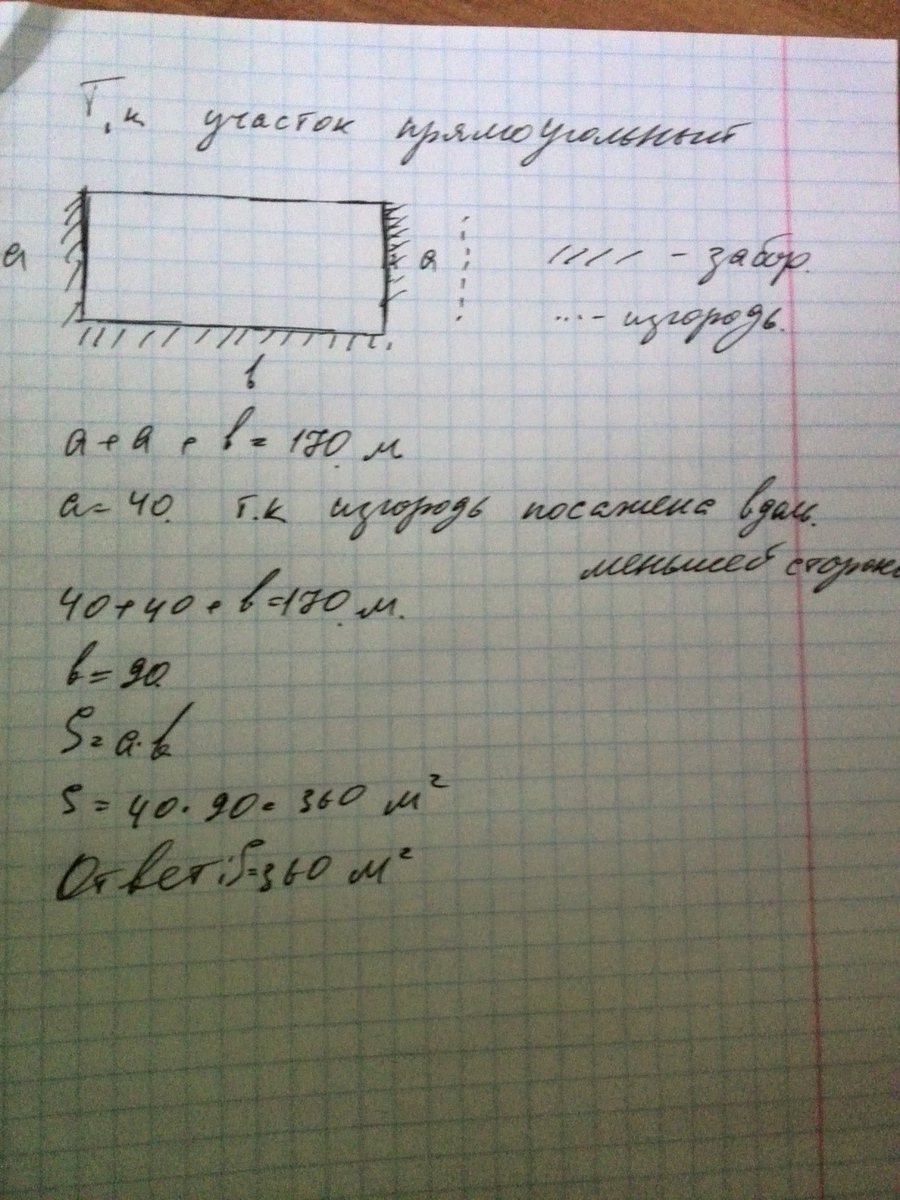 Т.к участок прямоугольный
a
a
//// - забор.
...- изгородь.
в
a + a + в = 170 м
a = 40. т.к изгородь посажена вдоль.
меньшей стороны
40 + 40 + в = 170 м.
в = 90.
S = a · в
S = 40 · 90 = 360 м²
Ответ: S = 360 м²